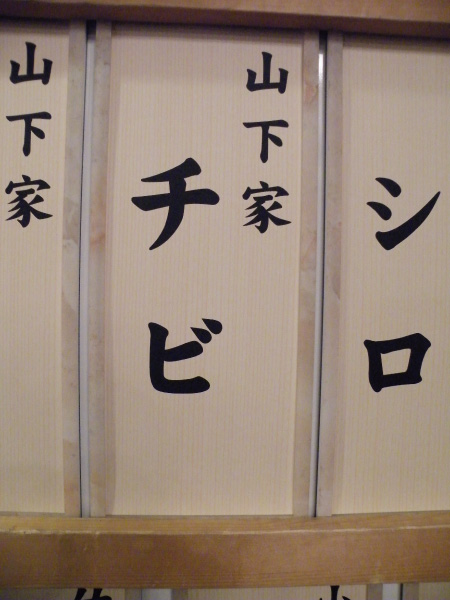 山下家
チビ
山下家
シロ